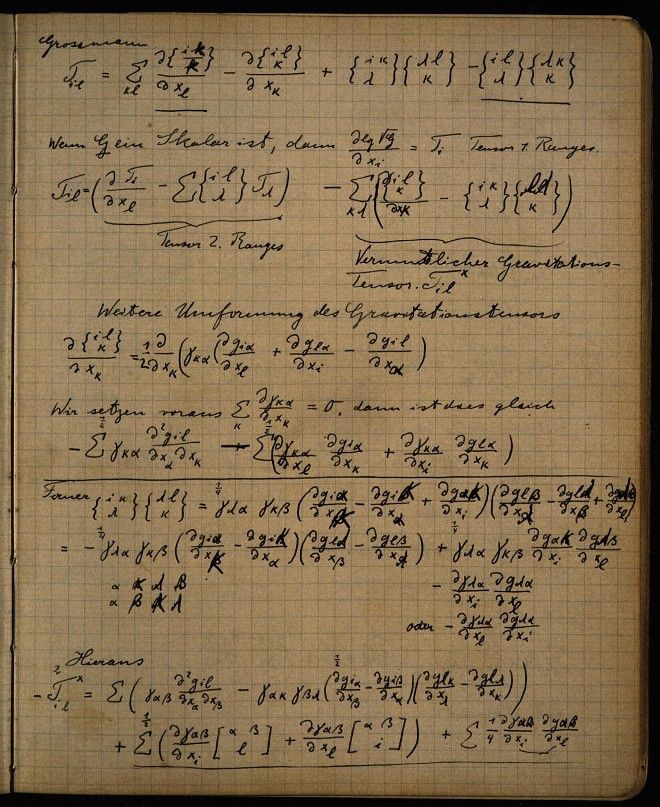 Grossmann
T_il = Σ_κl ∂{i κ / κ}/∂x_l − ∂{i l / κ}/∂x_κ + {i κ / λ}{λ l / κ} − {i l / λ}{λ κ / κ}
Wenn G ein Skalar ist, dann ∂lg√G/∂x_i = T_i Tensor 1. Ranges.
T_il = (∂T_i/∂x_l − Σ{i l / λ} T_λ) − Σ_κλ (∂{i l / κ}/∂x_κ − {i κ / λ}{λ l / κ})
Tensor 2. Ranges
Vermutlicher Gravitations-
Tensor. T_il^x
Weitere Umformung des Gravitationstensors
∂{i l / κ}/∂x_κ = 1/2 ∂/∂x_κ (γ_κα (∂g_iα/∂x_l + ∂g_lα/∂x_i − ∂g_il/∂x_α)
Wir setzen voraus Σ_κ ∂γ_κα/∂x_κ = 0, dann ist dies gleich
− 1/2 Σ γ_κα ∂²g_il/∂x_α∂x_κ + 1/2 Σ (∂γ_κα/∂x_l ∂g_iα/∂x_κ + ∂γ_κα/∂x_i ∂g_lα/∂x_κ)
Ferner {i κ / λ}{λ l / κ} = 1/4 γ_λα γ_κβ (∂g_iα/∂x_κ − ∂g_iκ/∂x_α + ∂g_ακ/∂x_i)(∂g_lβ/∂x_λ − ∂g_lλ/∂x_β + ∂g_λβ/∂x_l)
= − 1/4 γ_λα γ_κβ (∂g_iα/∂x_κ − ∂g_iκ/∂x_α)(∂g_lλ/∂x_β − ∂g_lβ/∂x_λ) + 1/4 γ_λα γ_κβ ∂g_ακ/∂x_i ∂g_λβ/∂x_l
α κ λ β
α β κ λ
− ∂γ_λα/∂x_i ∂g_λα/∂x_l
oder − ∂γ_λα/∂x_l ∂g_λα/∂x_i
Hieraus
− 2 T_il^x = Σ (γ_αβ ∂²g_il/∂x_α∂x_β − 1/2 γ_ακ γ_βλ (∂g_iα/∂x_β − ∂g_iβ/∂x_α)(∂g_lκ/∂x_λ − ∂g_lλ/∂x_κ))
+ 1/2 Σ (∂γ_αβ/∂x_i [α β / l] + ∂γ_αβ/∂x_l [α β / i]) + Σ 1/4 ∂γ_αβ/∂x_i ∂g_αβ/∂x_l